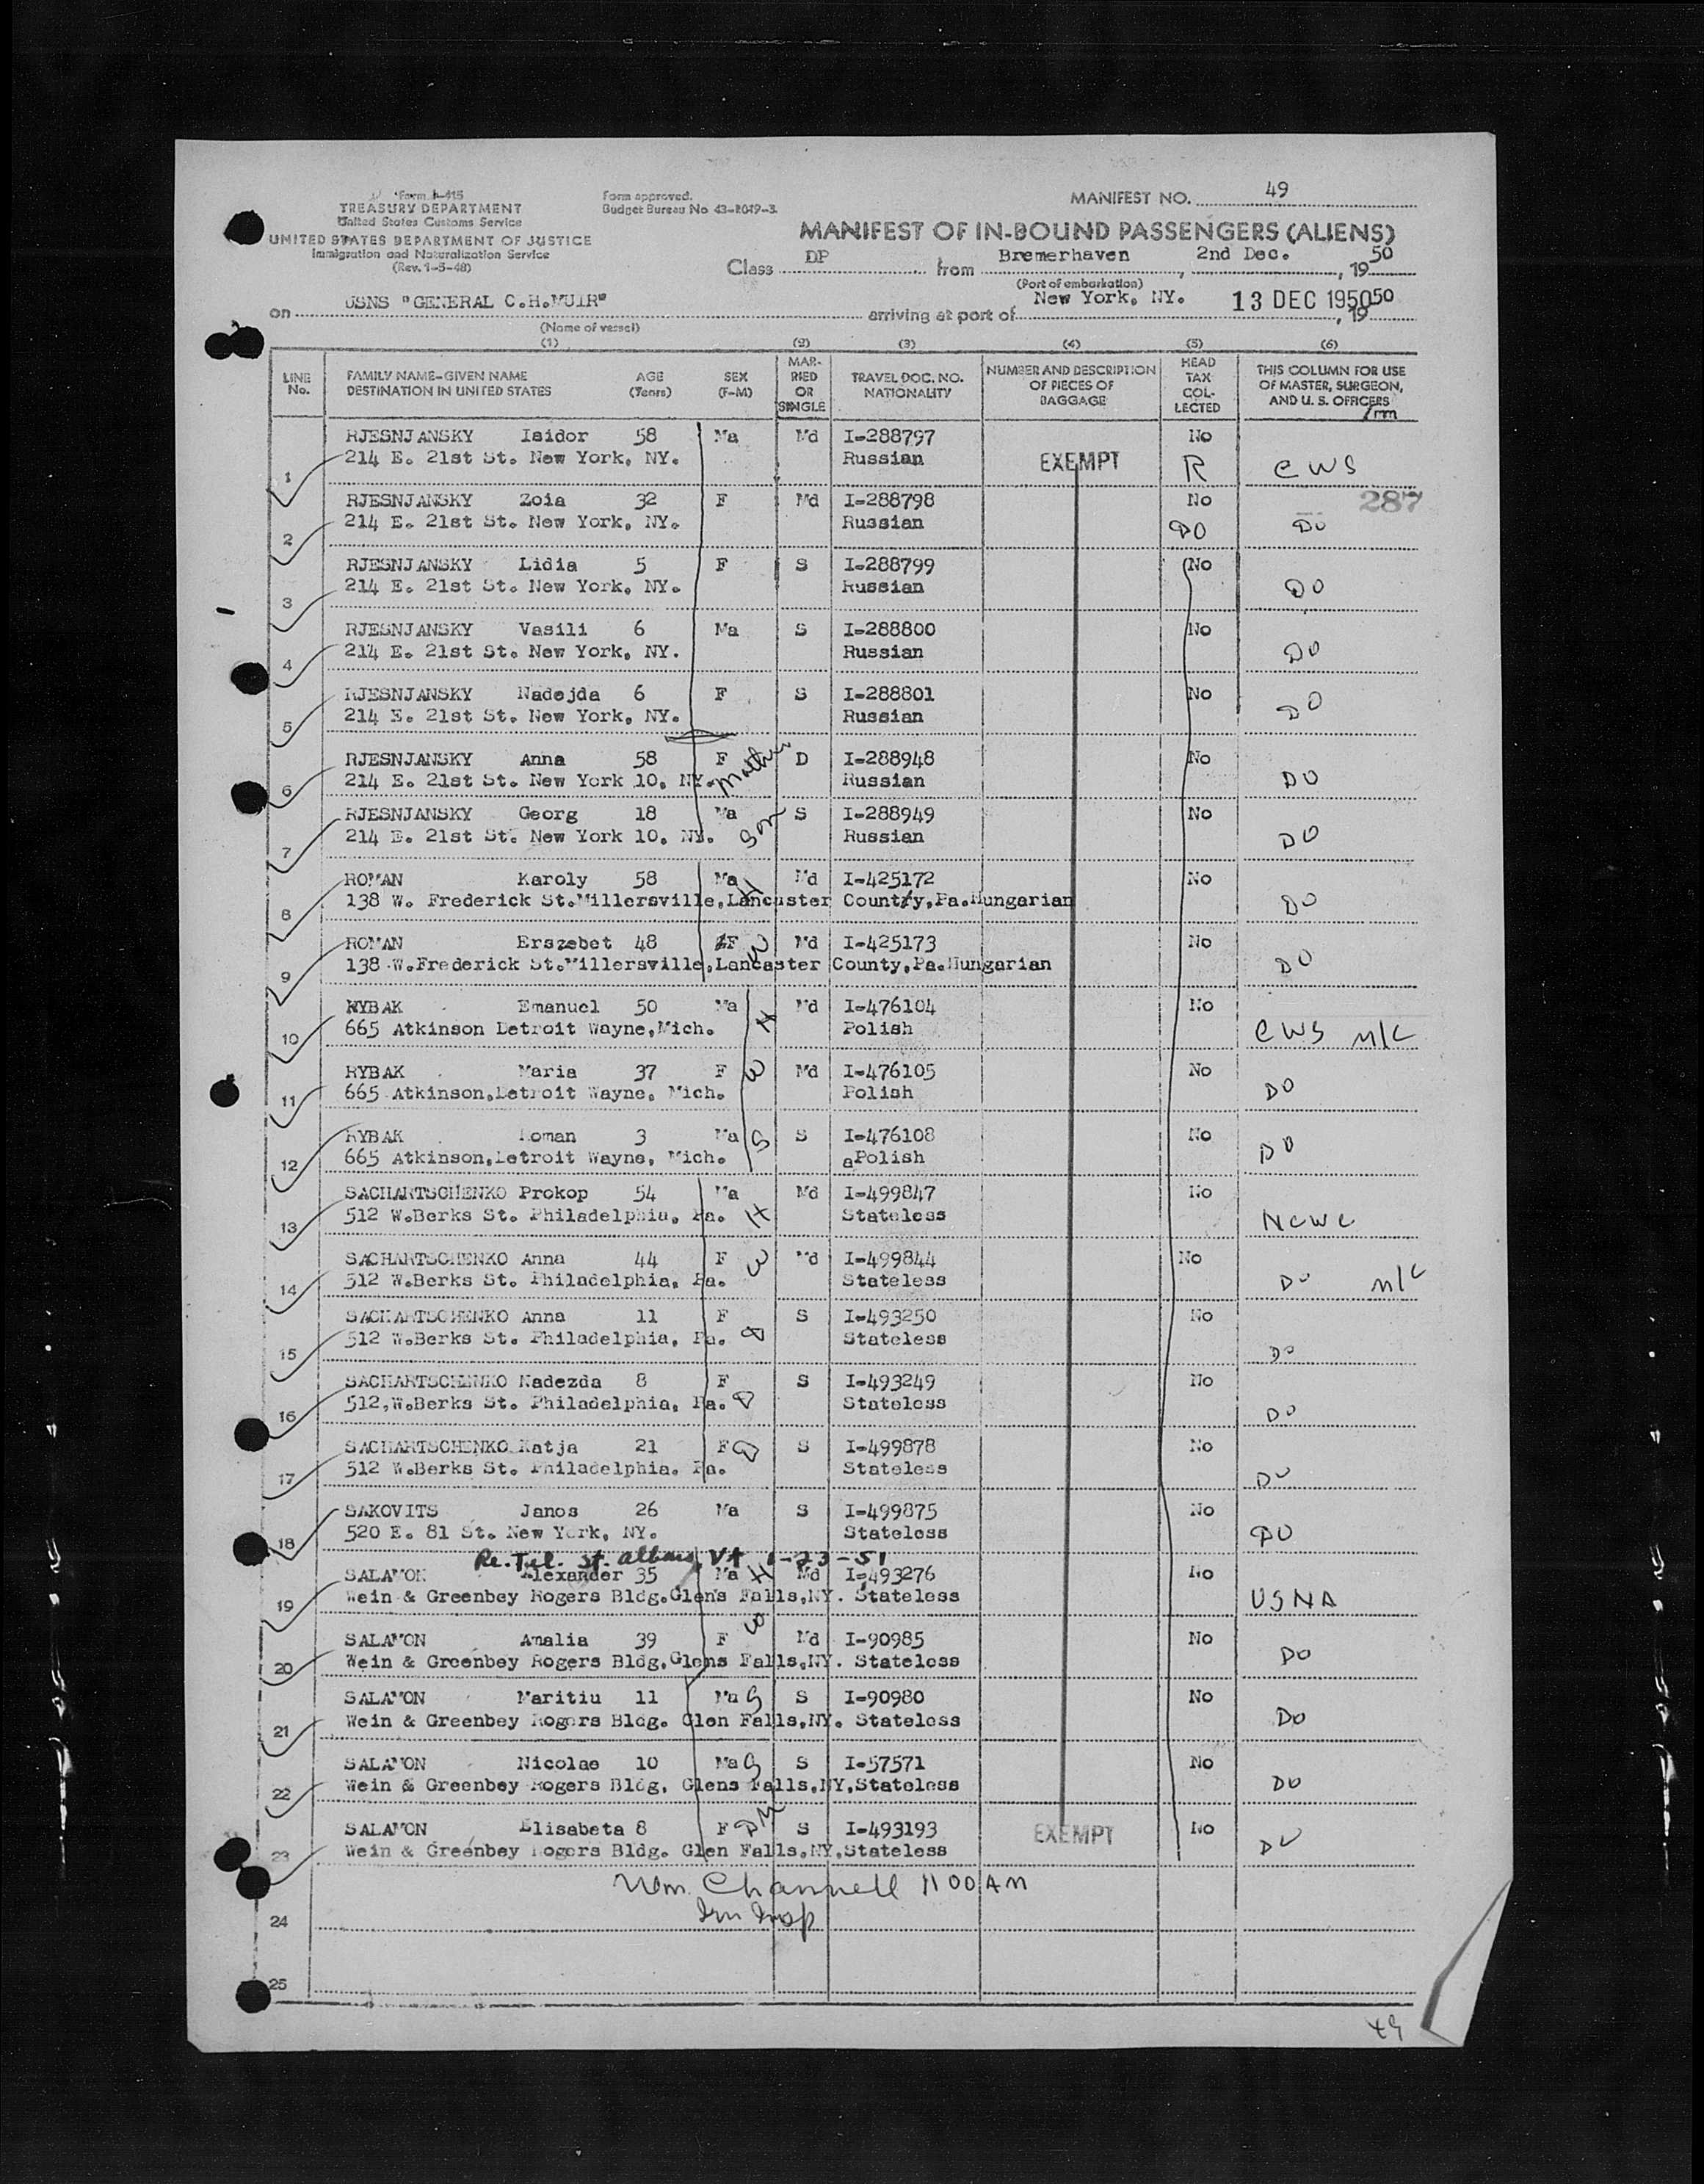 Form I-415
TREASURY DEPARTMENT
United States Customs Service
UNITED STATES DEPARTMENT OF JUSTICE
Immigration and Naturalization Service
(Rev. 1-5-48)
Form approved.
Budget Bureau No 43-R049-3.
MANIFEST NO. 49
MANIFEST OF IN-BOUND PASSENGERS (ALIENS)
Class DP from Bremerhaven, 2nd Dec., 1950
(Port of embarkation)
on USNS "GENERAL C.H.MUIR" arriving at port of New York, NY. 13 DEC 1950, 1950
(Name of vessel)
(1) (2) (3) (4) (5) (6)
LINE No. FAMILY NAME-GIVEN NAME DESTINATION IN UNITED STATES AGE (Years) SEX (F-M) MARRIED OR SINGLE TRAVEL DOC. NO. NATIONALITY NUMBER AND DESCRIPTION OF PIECES OF BAGGAGE HEAD TAX COLLECTED THIS COLUMN FOR USE OF MASTER, SURGEON, AND U. S. OFFICERS
RJESNJANSKY Isidor 58 Ma Md I-288797 No
1 214 E. 21st St. New York, NY. Russian EXEMPT R CWS
RJESNJANSKY Zoia 32 F Md I-288798 No 287
2 214 E. 21st St. New York, NY. Russian DO DO
RJESNJANSKY Lidia 5 F S I-288799 No
3 214 E. 21st St. New York, NY. Russian DO
RJESNJANSKY Vasili 6 Ma S I-288800 No
4 214 E. 21st St. New York, NY. Russian DO
RJESNJANSKY Nadejda 6 F S I-288801 No
5 214 E. 21st St. New York, NY. Russian DO
RJESNJANSKY Anna 58 F Mother D I-288948 No
6 214 E. 21st St. New York 10, NY. Russian DO
RJESNJANSKY Georg 18 Ma Son S I-288949 No
7 214 E. 21st St. New York 10, NY. Russian DO
ROMAN Karoly 58 Ma H Md I-425172 No
8 138 W. Frederick St.Millersville,Lancaster County,Pa.Hungarian DO
ROMAN Erszebet 48 F W Md I-425173 No
9 138 W.Frederick St.Millersville,Lancaster County,Pa.Hungarian DO
RYBAK Emanuel 50 Ma H Md I-476104 No
10 665 Atkinson Detroit Wayne,Mich. Polish CWS M/C
RYBAK Maria 37 F W Md I-476105 No
11 665 Atkinson,Detroit Wayne, Mich. Polish DO
RYBAK Roman 3 Ma S S I-476108 No
12 665 Atkinson,Detroit Wayne, Mich. aPolish DO
SACHARTSCHENKO Prokop 54 Ma H Md I-499847 No
13 512 W.Berks St. Philadelphia, Pa. Stateless NCWC
SACHARTSCHENKO Anna 44 F W Md I-499844 No
14 512 W.Berks St. Philadelphia, Pa. Stateless DO M/C
SACHARTSCHENKO Anna 11 F D S I-493250 No
15 512 W.Berks St. Philadelphia, Pa. Stateless DO
SACHARTSCHENKO Nadezda 8 F D S I-493249 No
16 512,W.Berks St. Philadelphia, Pa. Stateless DO
SACHARTSCHENKO Katja 21 F D S I-499878 No
17 512 W.Berks St. Philadelphia. Pa. Stateless DO
SAKOVITS Janos 26 Ma S I-499875 No
18 520 E. 81 St. New York, NY. Stateless DO
Re. Tel. St. Albans, Vt 1-23-51
SALAMON Alexander 35 Ma H Md I-493276 No
19 Wein & Greenbey Rogers Bldg.Glens Falls,NY. Stateless USNA
SALAMON Amalia 39 F W Md I-90985 No
20 Wein & Greenbey Rogers Bldg.Glens Falls,NY. Stateless DO
SALAMON Maritiu 11 Ma S S I-90980 No
21 Wein & Greenbey Rogers Bldg. Glen Falls,NY. Stateless DO
SALAMON Nicolae 10 Ma S S I-57571 No
22 Wein & Greenbey Rogers Bldg. Glens Falls,NY,Stateless DO
SALAMON Elisabeta 8 F S I-493193 EXEMPT No
23 Wein & Greenbey Rogers Bldg. Glen Falls,NY,Stateless DO
Wm. Channell 11 00 AM
24 Imm Insp
25
49